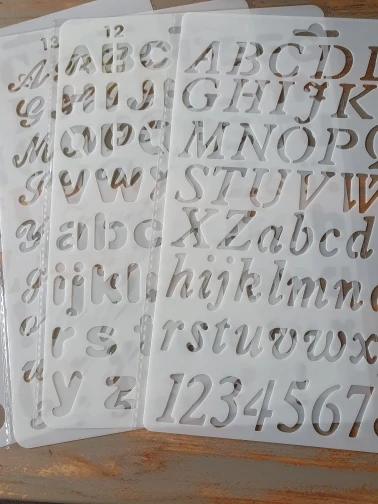 13
A
G
M
12
ABC
HIJ
OPQ
VWX
abc
ijkl
rst
yz
ABCD
GHIJK
MNOPQ
STUVW
XZabcd
hijklmn
rstuvwx
1234567